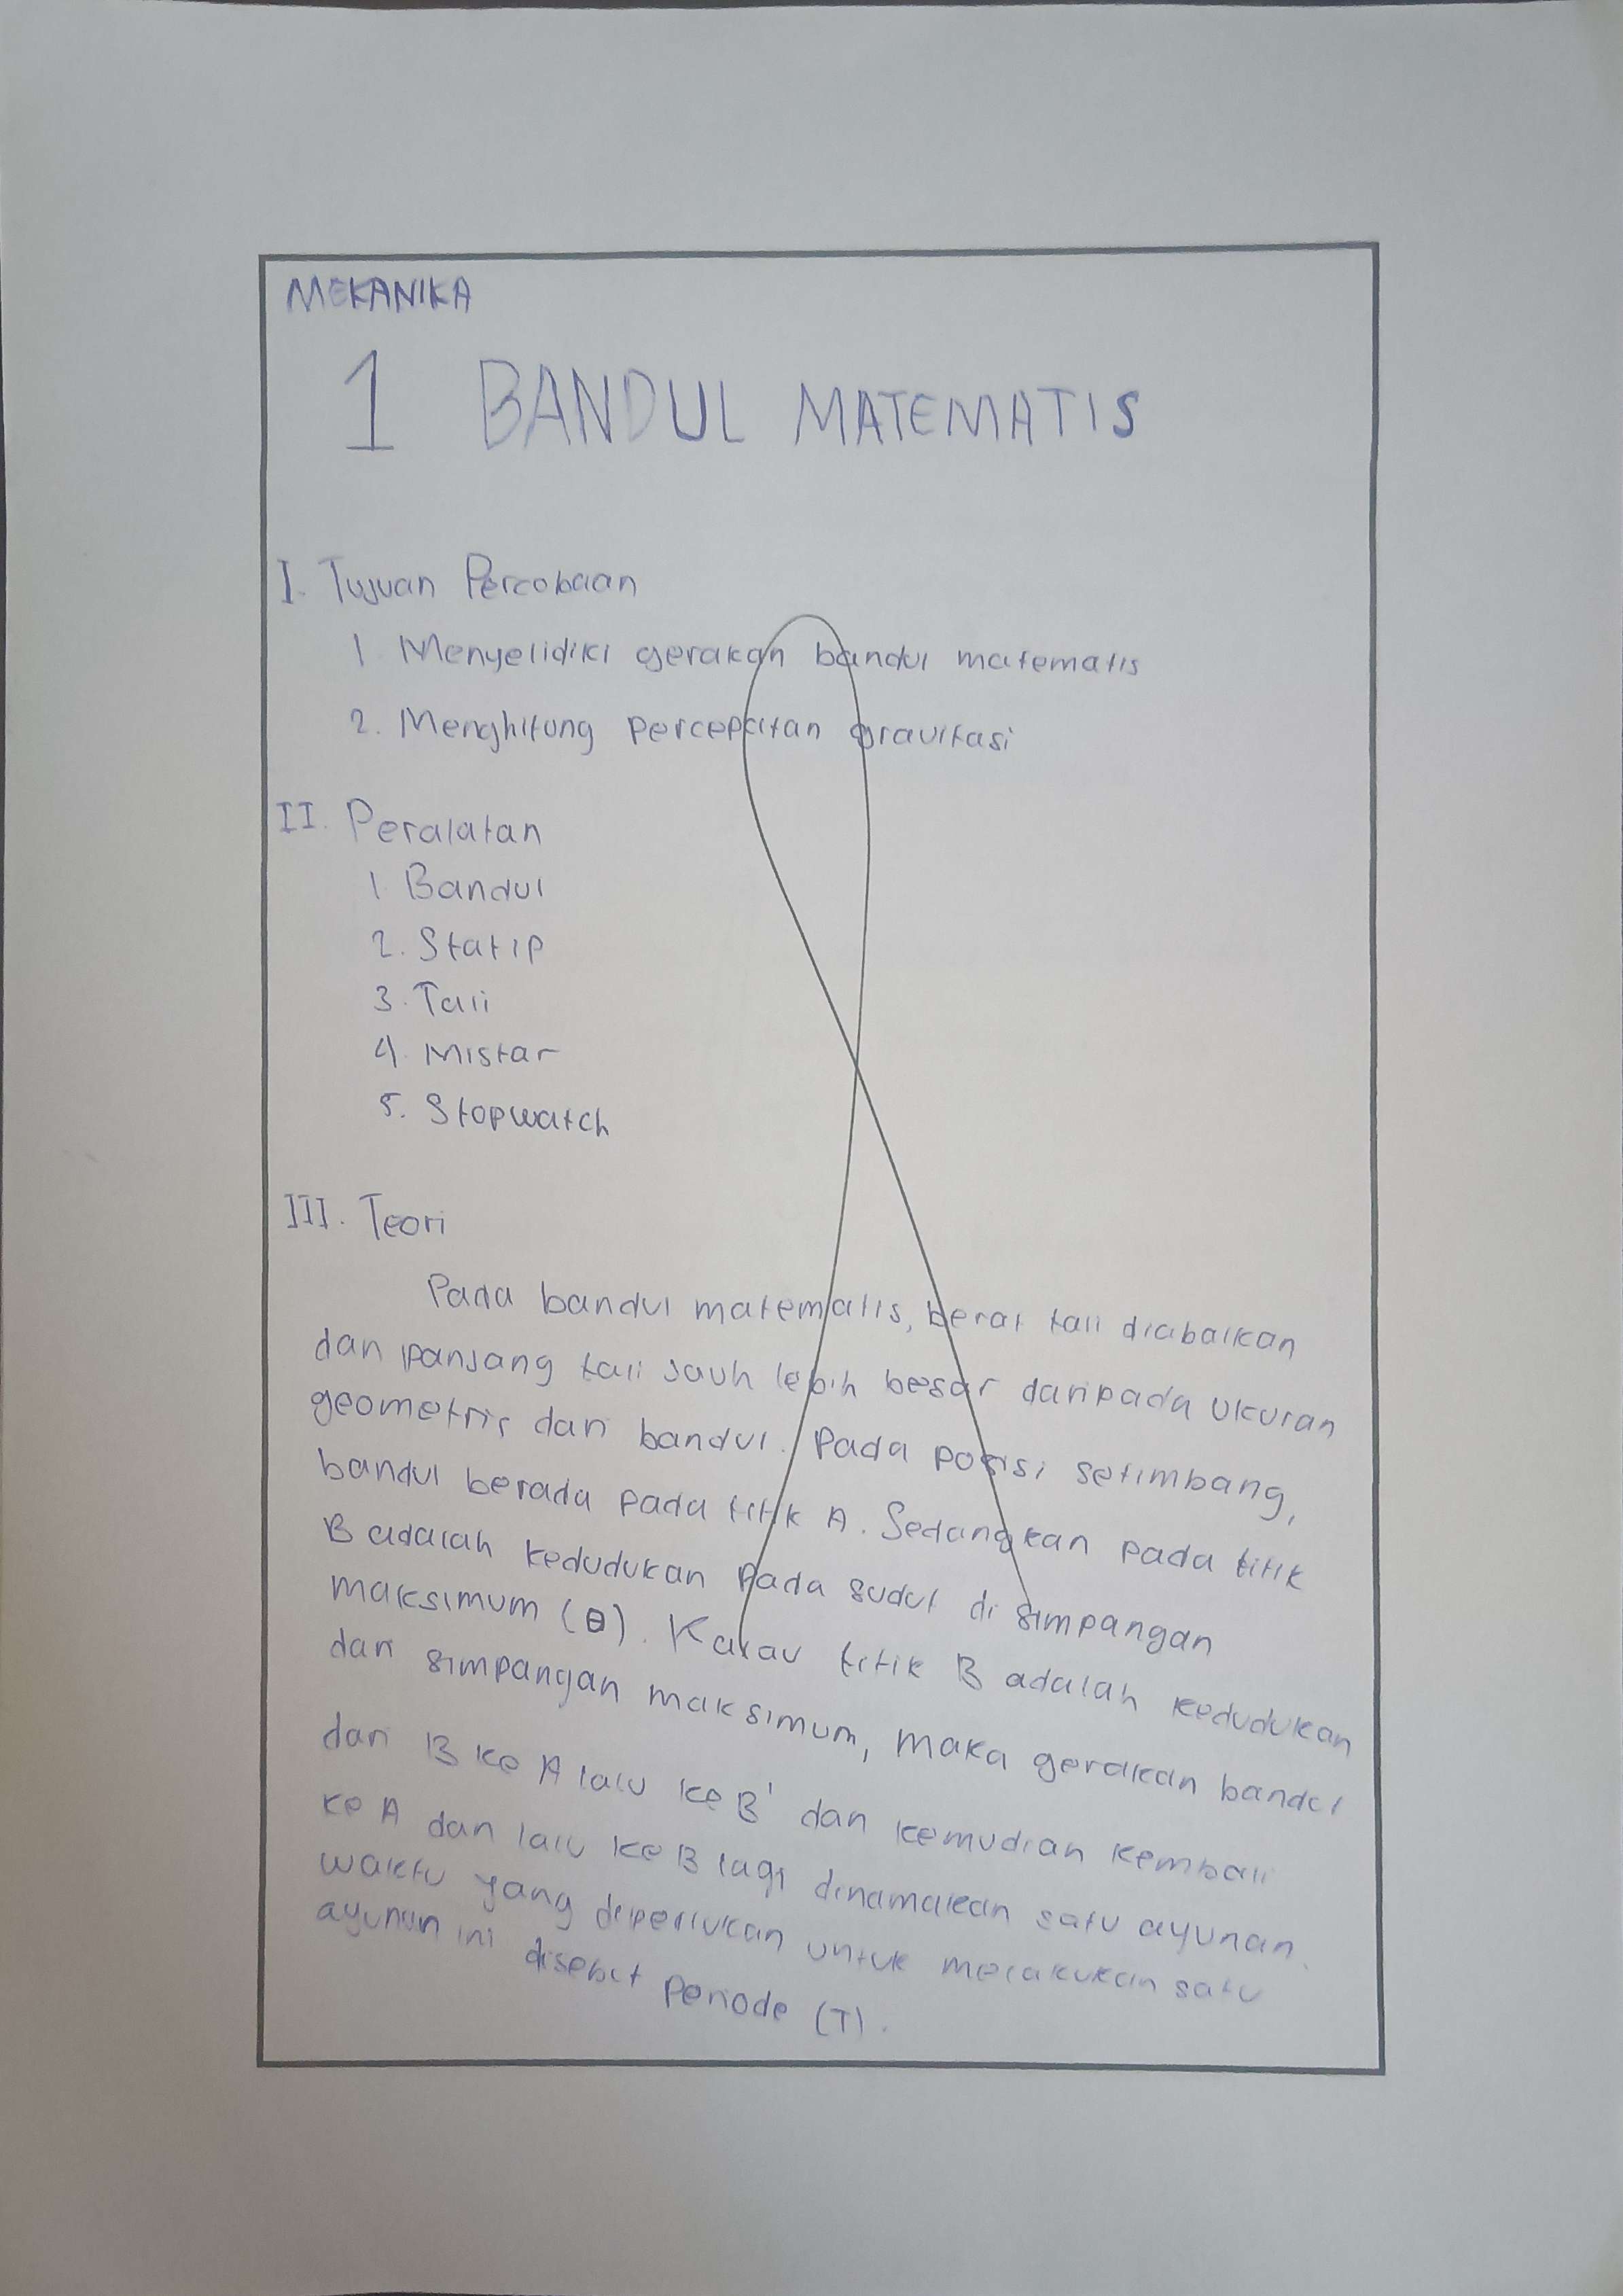 MEKANIKA
1 BANDUL MATEMATIS
I. Tujuan Percobaan
1. Menyelidiki gerakan bandul matematis
2. Menghitung percepatan gravitasi
II. Peralatan
1. Bandul
2. Statip
3. Tali
4. Mistar
5. Stopwatch
III. Teori
Pada bandul matematis, berat tali diabaikan
dan panjang tali jauh lebih besar daripada ukuran
geometris dari bandul. Pada posisi setimbang,
bandul berada pada titik A. Sedangkan pada titik
B adalah kedudukan pada sudut di simpangan
maksimum (θ). Kalau titik B adalah kedudukan
dari simpangan maksimum, maka gerakan bandul
dari B ke A lalu ke B' dan kemudian kembali
ke A dan lalu ke B lagi dinamakan satu ayunan.
waktu yang diperlukan untuk melakukan satu
ayunan ini disebut Periode (T).